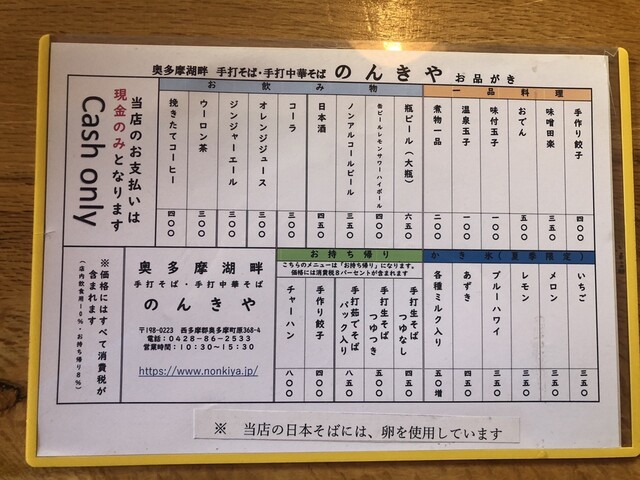 奥多摩湖畔 手打そば・手打中華そば のんきや お品がき
一品料理
手作り餃子 四〇〇
味噌田楽 三五〇
おでん 五〇〇
味付玉子 一〇〇
温泉玉子 一〇〇
煮物一品 二〇〇
お飲み物
瓶ビール(大瓶) 六五〇
缶ビール レモンサワー ハイボール 四〇〇
ノンアルコールビール 三五〇
日本酒 四五〇
コーラ 三〇〇
オレンジジュース 三〇〇
ジンジャーエール 三〇〇
ウーロン茶 三〇〇
挽きたてコーヒー 四〇〇
当店のお支払いは
現金のみとなります
Cash only
かき氷(夏季限定)
いちご 三五〇
メロン 三五〇
レモン 三五〇
ブルーハワイ 三五〇
あずき 四五〇
各種ミルク入り 五〇増
お持ち帰り
こちらのメニューは「お持ち帰り」になります。
価格には消費税8パーセントが含まれます
手打生そば つゆなし 四五〇
手打生そば つゆつき 五五〇
手打茹でそば パック入り 八五〇
手作り餃子 四〇〇
チャーハン 八〇〇
奥多摩湖畔
手打そば・手打中華そば
のんきや
〒198-0223 西多摩郡奥多摩町原368-4
電話:0428-86-2533
営業時間:10:30~15:30
https://www.nonkiya.jp/
※価格にはすべて消費税が
含まれます
(店内飲食用10%・お持ち帰り8%)
※ 当店の日本そばには、卵を使用しています